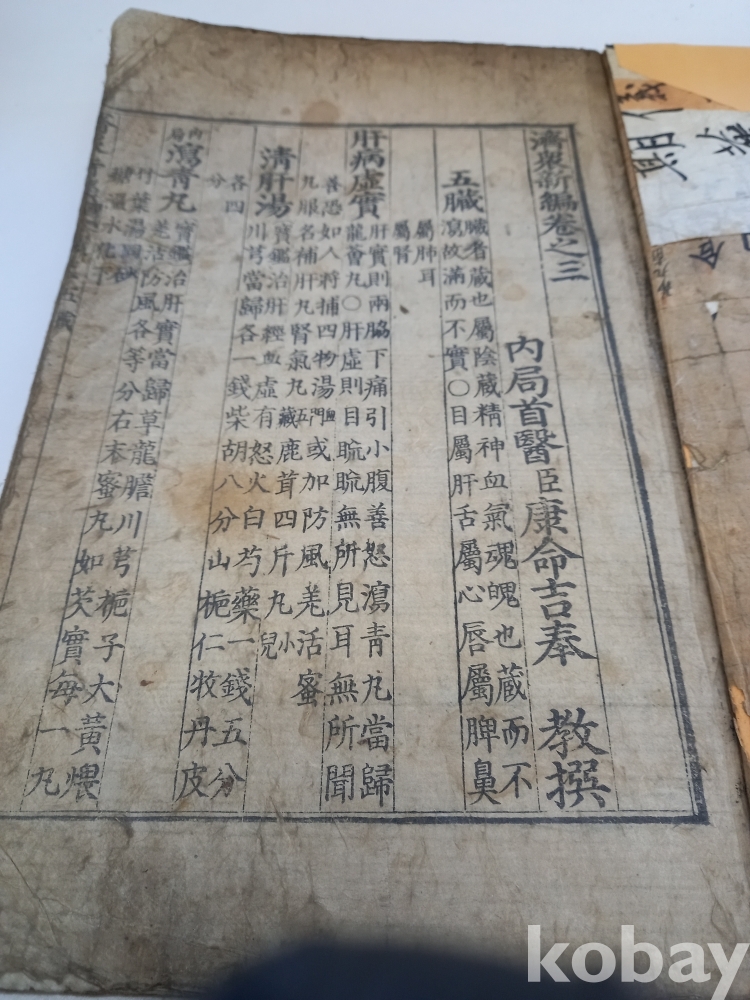 濟衆新編卷之三
內局首醫臣康命吉奉 教撰
五臟
臟者蔵也屬陰蔵精神血氣魂魄也蔵而不
瀉故滿而不實○目屬肝舌屬心唇屬脾鼻
屬肺耳
屬腎
肝病虛實
肝實則兩脇下痛引小腹善怒瀉青丸當歸
龍薈丸○肝虛則目䀮䀮無所見耳無所聞
善恐如人將捕四物湯或加防風羌活蜜
丸服名補肝丸腎氣丸鹿茸四斤丸
清肝湯
寶鑑治肝經血虛有怒火白芍藥一錢五分
川芎當歸各一錢柴胡八分山梔仁牧丹皮
各四
分
瀉青丸
寶鑑治肝實當歸草龍膽川芎梔子大黃煨
羌活防風各等分右末蜜丸如芡實每一丸
竹葉湯
水化下
kobay